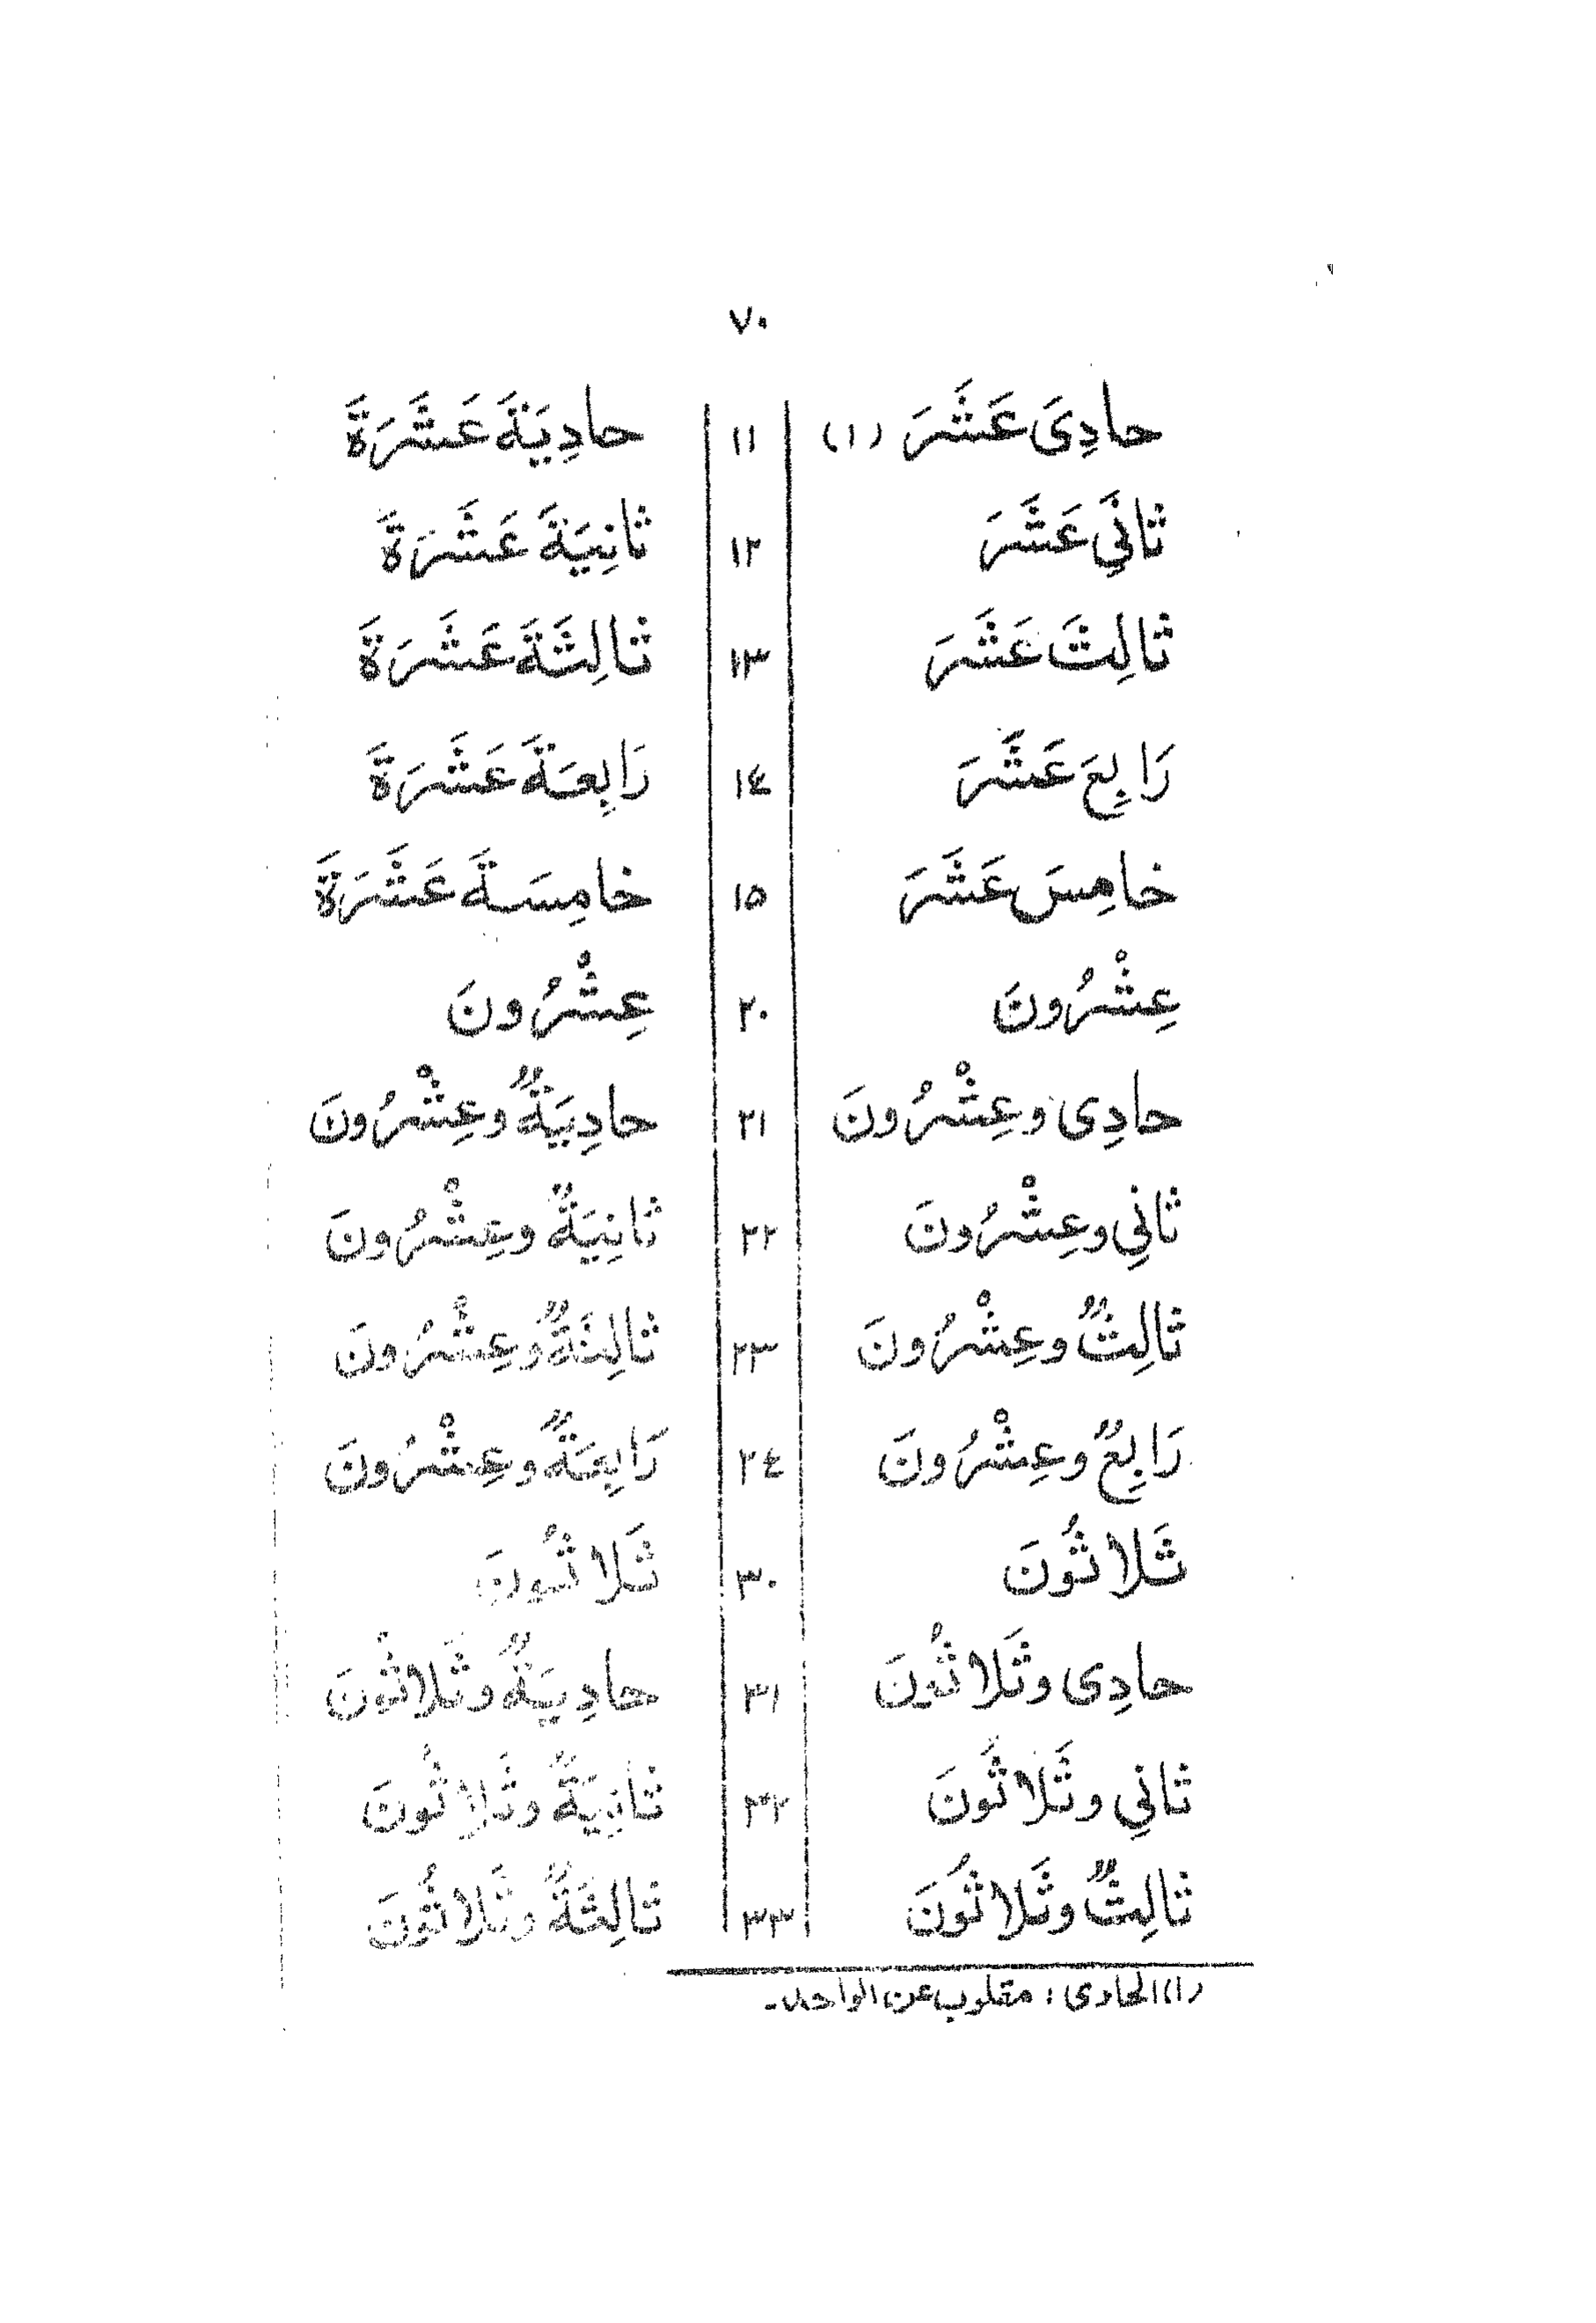 ٧٠
حادِىَ عَشَرَ (١) ١١ حادِيَةَ عَشَرَةَ
ثانِيَ عَشَرَ ١٢ ثانِيَةَ عَشَرَةَ
ثالِثَ عَشَرَ ١٣ ثالِثَةَ عَشَرَةَ
رَابِعَ عَشَرَ ١٤ رَابِعَةَ عَشَرَةَ
خامِسَ عَشَرَ ١٥ خامِسَةَ عَشَرَةَ
عِشْرُونَ ٢٠ عِشْرُونَ
حادِى وعِشْرُونَ ٢١ حادِيَةٌ وعِشْرُونَ
ثانِي وعِشْرُونَ ٢٢ ثانِيَةٌ وعِشْرُونَ
ثالِثٌ وعِشْرُونَ ٢٣ ثالِثَةٌ وعِشْرُونَ
رَابِعٌ وعِشْرُونَ ٢٤ رَابِعَةٌ وعِشْرُونَ
ثَلاثُونَ ٣٠ ثَلاثُونَ
حادِى وثَلاثُونَ ٣١ حادِيَةٌ وثَلاثُونَ
ثانِي وثَلاثُونَ ٣٢ ثانِيَةٌ وثَلاثُونَ
ثالِثٌ وثَلاثُونَ ٣٣ ثالِثَةٌ وثَلاثُونَ
(١) الحادى : مقلوب عن الواحد.